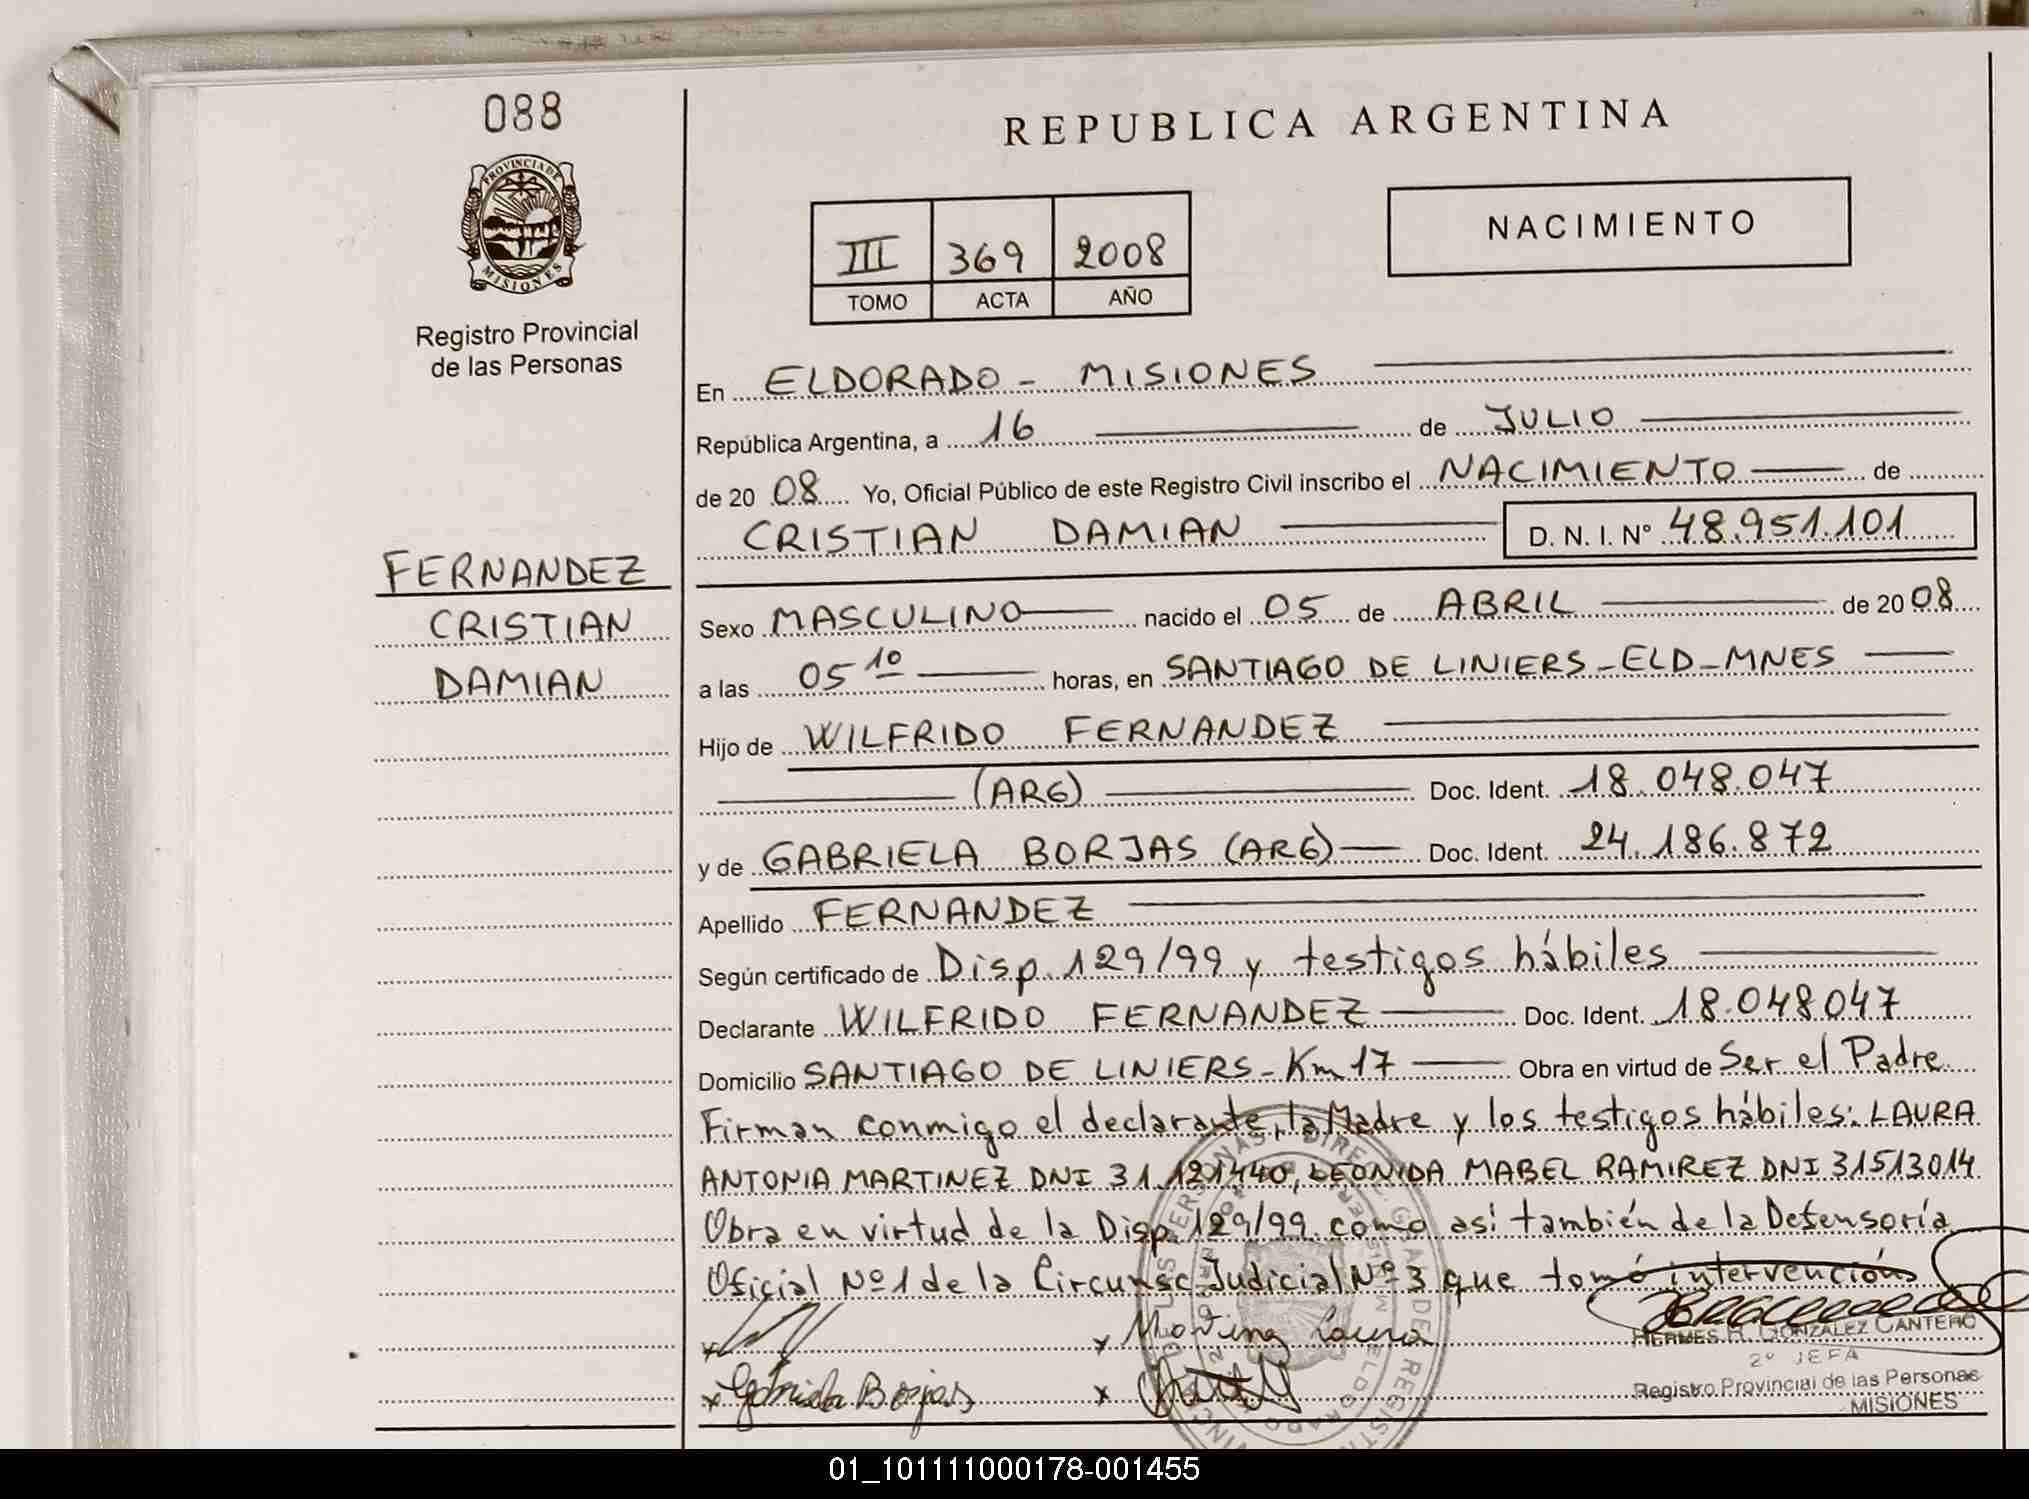 088
PROVINCIA DE
MISIONES
Registro Provincial
de las Personas
FERNANDEZ
CRISTIAN
DAMIAN
REPUBLICA ARGENTINA
III 369 2008
TOMO ACTA AÑO
NACIMIENTO
En ELDORADO - MISIONES
República Argentina, a 16 de JULIO
de 20 08 Yo, Oficial Público de este Registro Civil inscribo el NACIMIENTO de
CRISTIAN DAMIAN D. N. I. Nº 48.951.101
Sexo MASCULINO nacido el 05 de ABRIL de 20 08
a las 05 10 horas, en SANTIAGO DE LINIERS - ELD - MNES
Hijo de WILFRIDO FERNANDEZ
(ARG) Doc. Ident. 18.048.047
y de GABRIELA BORJAS (ARG) Doc. Ident. 24.186.872
Apellido FERNANDEZ
Según certificado de Disp. 129/99 y testigos hábiles
Declarante WILFRIDO FERNANDEZ Doc. Ident. 18.048.047
Domicilio SANTIAGO DE LINIERS - Km 17 Obra en virtud de Ser el Padre
Firman conmigo el declarante, la Madre y los testigos hábiles: LAURA
ANTONIA MARTINEZ DNI 31.121440, LEONIDA MABEL RAMIREZ DNI 31513014
Obra en virtud de la Disp. 129/99 como así también de la Defensoría
Oficial Nº 1 de la Circunsc. Judicial Nº 3 que tomó intervención
HERMES R. GONZALEZ CANTERO
2º JEFA
Gabriela Borjas
Registro Provincial de las Personas
MISIONES
01_101111000178-001455